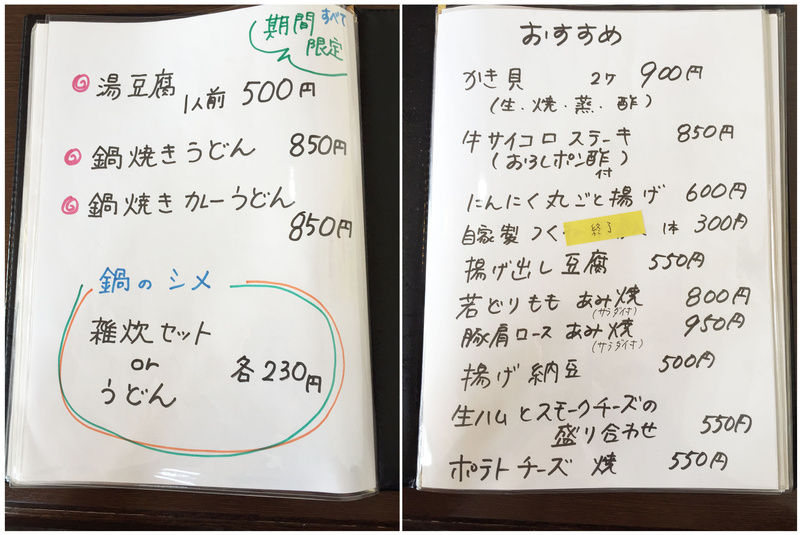 すべて
期間
限定
湯豆腐 1人前 500円
鍋焼きうどん 850円
鍋焼きカレーうどん
850円
鍋のシメ
雑炊セット
or
うどん
各230円
おすすめ
かき貝 2ケ 900円
(生・焼・蒸・酢)
牛サイコロステーキ 850円
(おろしポン酢付)
にんにく丸ごと揚げ 600円
自家製つく 終了 1本 300円
揚げ出し豆腐 550円
若どりもも あみ焼 800円
(サラダ付)
豚肩ロース あみ焼 950円
(サラダ付)
揚げ納豆 500円
生ハムとスモークチーズの
盛り合わせ 550円
ポテトチーズ焼 550円